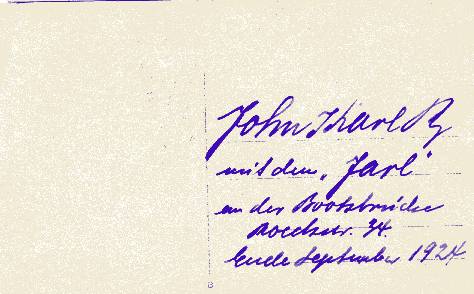 John Karl R
mit dem „Jarl"
an der Bootsbrücke
str. 34.
Ende September 1924.